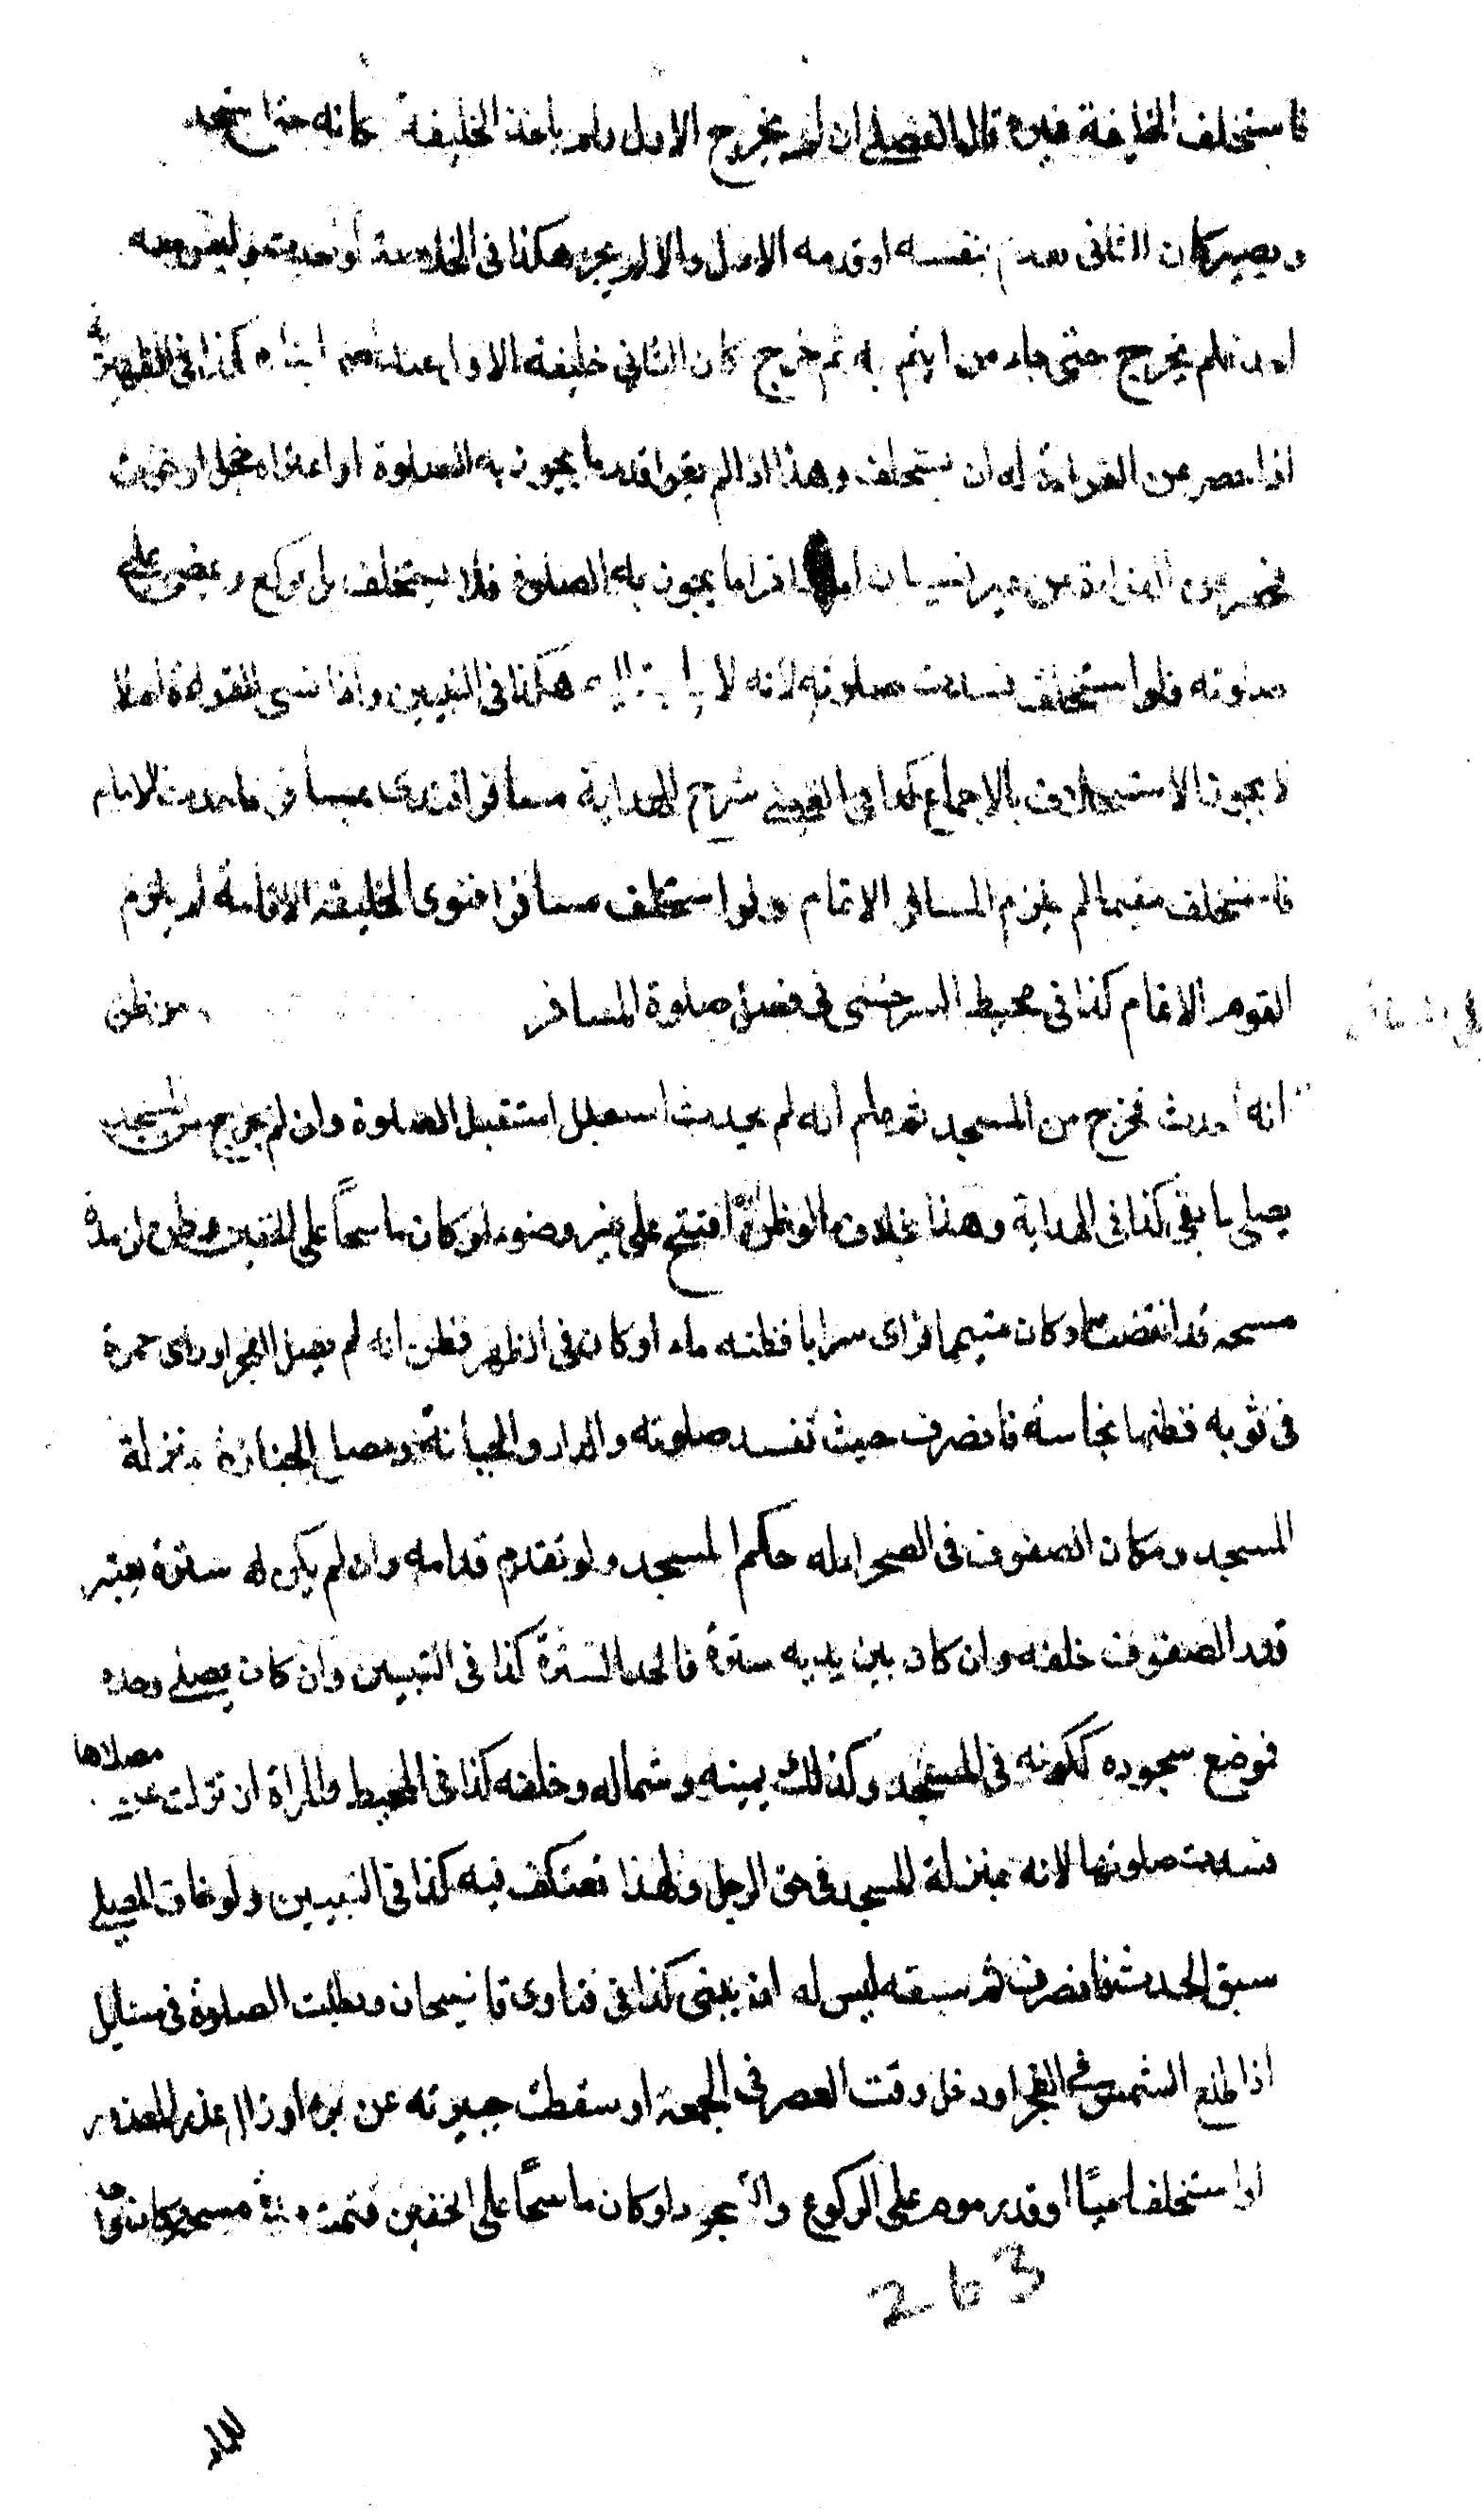 فاستخلف الخليفة غيره قال الفضلي ان لم يخرج الاول ولم ياخذ الخليفة مكانه حتى استخلف
ويصير كان الثاني تقدم بنفسه او قدمه الاول والا لم يجز هكذا في الخلاصة لو احدث وليس معه
احد فلم يخرج حتى جاء من ايتم به ثم خرج كان الثاني خليفة الاول عند اصحابنا كذا في الظهيرية
اذا حصر عن القراءة له ان يستخلف وهذا اذا لم يقرا قدر ما يجوز به الصلوة او اعتراه خجل او خوف
فحصر عن القراءة من غير نسيان اما اذا قرا ما يجوز به الصلوة فلا يستخلف بل يركع ويمضي على
صلوته فلو استخلف فسدت صلوته لانه لا هكذا في التبيين واذا نسي القراءة اصلا
لا يجوز الاستخلاف بالاجماع كذا في العيني شرح الهداية مسافر اقتدى بمسافر فاحدث الامام
فاستخلف مقيما لم يلزم المسافر الاتمام ولو استخلف مسافرا فنوى الخليفة الاقامة لم يلزم
القوم الاتمام كذا في محيط السرخسي في فصل صلوة المسافر من ظن
انه احدث فخرج من المسجد ثم علم انه لم يحدث استقبل الصلوة وان لم يخرج من المسجد
يصلي ما بقي كذا في الهداية وهذا بخلاف ما لو ظن انه افتتح على غير وضوء او كان ماسحا على الخفين وظن ان مدة
مسحه قد انقضت او كان متيمما فراى سرابا فظنه ماء او كان في الظهر فظن انه لم يصل الفجر او راى حمرة
في ثوبه فظنها نجاسة فانصرف حيث تفسد صلوته والدار والجبانة ومصلى الجنازة بمنزلة
المسجد ومكان الصفوف في الصحراء له حكم المسجد ولو تقدم قدامه وان لم يكن له سترة يعتبر
قدر الصفوف خلفه وان كان بين يديه سترة فالحد السترة كذا في التبيين وان كان يصلي وحده
فموضع سجوده ككونه في المسجد وكذلك يمينه وشماله وخلفه كذا في المحيط والمراة ان نزلت عن مصلاها
فسدت صلوتها لانه بمنزلة المسجد في حق الرجل ولهذا تعتكف فيه كذا في التبيين ولو خاف المصلي
سبق الحدث فانصرف ثم سبقه ليس له ان يبنى كذا في فتاوى قاضيخان وبطلت الصلوة في مسايل
اذا طلع الشمس في الفجر او دخل وقت العصر في الجمعة او سقطت جبيرته عن برء او زال عذر المعذور
او استخلف اميا او قدر موم على الركوع والسجود او كان ماسحا على الخفين فتمت مدة مسحه
263